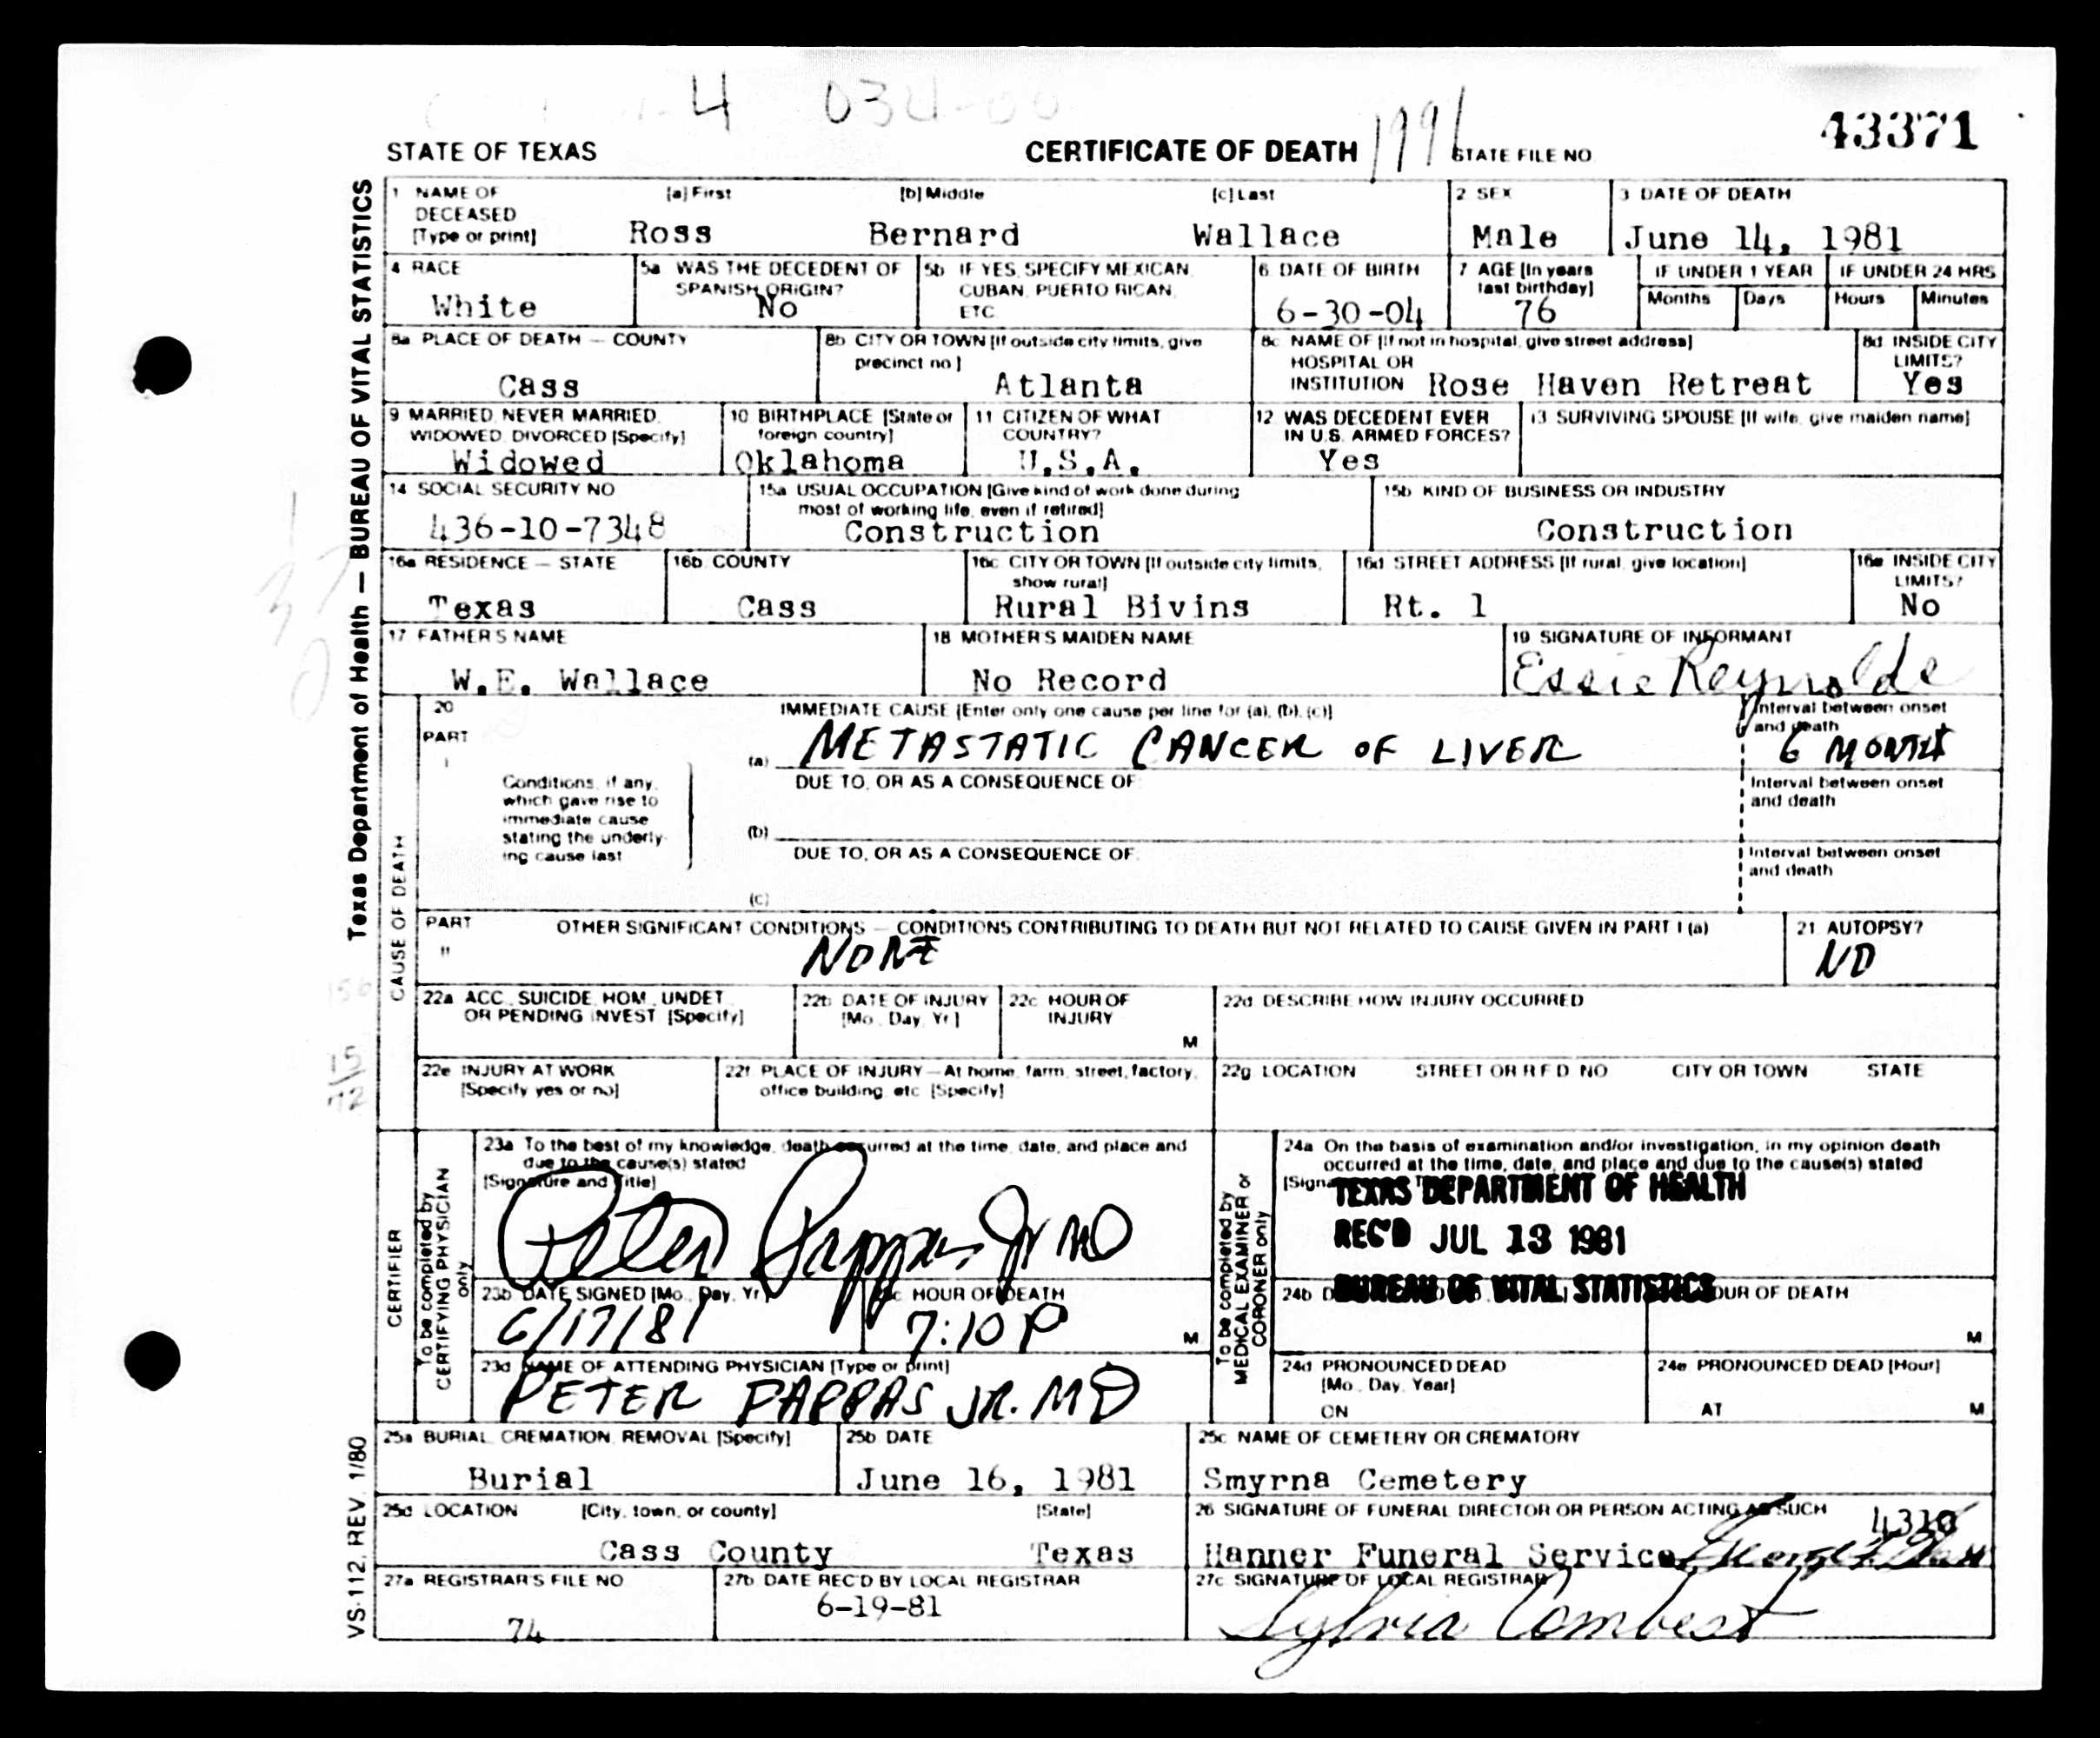 4 034-00
STATE OF TEXAS CERTIFICATE OF DEATH 1991 STATE FILE NO 43371
Texas Department of Health — BUREAU OF VITAL STATISTICS
1 NAME OF DECEASED [Type or print] [a] First [b] Middle [c] Last 2 SEX 3 DATE OF DEATH
Ross Bernard Wallace Male June 14, 1981
4 RACE 5a WAS THE DECEDENT OF SPANISH ORIGIN? 5b IF YES, SPECIFY MEXICAN, CUBAN, PUERTO RICAN, ETC 6 DATE OF BIRTH 7 AGE [In years last birthday] IF UNDER 1 YEAR IF UNDER 24 HRS
Months Days Hours Minutes
White No 6-30-04 76
8a PLACE OF DEATH — COUNTY 8b CITY OR TOWN [If outside city limits, give precinct no ] 8c NAME OF [If not in hospital, give street address] HOSPITAL OR INSTITUTION 8d INSIDE CITY LIMITS?
Cass Atlanta Rose Haven Retreat Yes
9 MARRIED, NEVER MARRIED, WIDOWED, DIVORCED [Specify] 10 BIRTHPLACE [State or foreign country] 11 CITIZEN OF WHAT COUNTRY? 12 WAS DECEDENT EVER IN U.S. ARMED FORCES? 13 SURVIVING SPOUSE [If wife, give maiden name]
Widowed Oklahoma U.S.A. Yes
14 SOCIAL SECURITY NO 15a USUAL OCCUPATION [Give kind of work done during most of working life, even if retired] 15b KIND OF BUSINESS OR INDUSTRY
436-10-7348 Construction Construction
16a RESIDENCE — STATE 16b COUNTY 16c CITY OR TOWN [If outside city limits, show rural] 16d STREET ADDRESS [If rural, give location] 16e INSIDE CITY LIMITS?
Texas Cass Rural Bivins Rt. 1 No
17 FATHER'S NAME 18 MOTHER'S MAIDEN NAME 19 SIGNATURE OF INFORMANT
W.E. Wallace No Record Essie Reynolds
CAUSE OF DEATH
20 IMMEDIATE CAUSE [Enter only one cause per line for (a), (b), (c)] Interval between onset and death
PART I (a) METASTATIC CANCER OF LIVER 6 MONTHS
Conditions, if any, which gave rise to immediate cause stating the underlying cause last
DUE TO, OR AS A CONSEQUENCE OF Interval between onset and death
(b)
DUE TO, OR AS A CONSEQUENCE OF Interval between onset and death
(c)
PART II OTHER SIGNIFICANT CONDITIONS — CONDITIONS CONTRIBUTING TO DEATH BUT NOT RELATED TO CAUSE GIVEN IN PART I (a) 21 AUTOPSY?
NONE NO
22a ACC., SUICIDE, HOM., UNDET OR PENDING INVEST [Specify] 22b DATE OF INJURY [Mo., Day, Yr.] 22c HOUR OF INJURY M 22d DESCRIBE HOW INJURY OCCURRED
22e INJURY AT WORK [Specify yes or no] 22f PLACE OF INJURY — At home, farm, street, factory, office building, etc [Specify] 22g LOCATION STREET OR R F D NO CITY OR TOWN STATE
15
72
CERTIFIER
To be completed by CERTIFYING PHYSICIAN only
23a To the best of my knowledge, death occurred at the time, date, and place and due to the cause(s) stated
[Signature and Title]
Peter Pappas Jr MD
23b DATE SIGNED [Mo., Day, Yr.] 23c HOUR OF DEATH
6/17/81 7:10 P M
23d NAME OF ATTENDING PHYSICIAN [Type or print]
PETER PAPPAS JR. MD
To be completed by MEDICAL EXAMINER or CORONER only
24a On the basis of examination and/or investigation, in my opinion death occurred at the time, date, and place and due to the cause(s) stated
TEXAS DEPARTMENT OF HEALTH
REC'D JUL 13 1981
BUREAU OF VITAL STATISTICS
24b HOUR OF DEATH M
24d PRONOUNCED DEAD [Mo., Day, Year] ON 24e PRONOUNCED DEAD [Hour] AT M
25a BURIAL, CREMATION, REMOVAL [Specify] 25b DATE 25c NAME OF CEMETERY OR CREMATORY
Burial June 16, 1981 Smyrna Cemetery
25d LOCATION [City, town, or county] [State] 26 SIGNATURE OF FUNERAL DIRECTOR OR PERSON ACTING AS SUCH 4310
Cass County Texas Hanner Funeral Service
27a REGISTRAR'S FILE NO 27b DATE REC'D BY LOCAL REGISTRAR 27c SIGNATURE OF LOCAL REGISTRAR
74 6-19-81 Sylvia Combest
VS-112, REV. 1/80